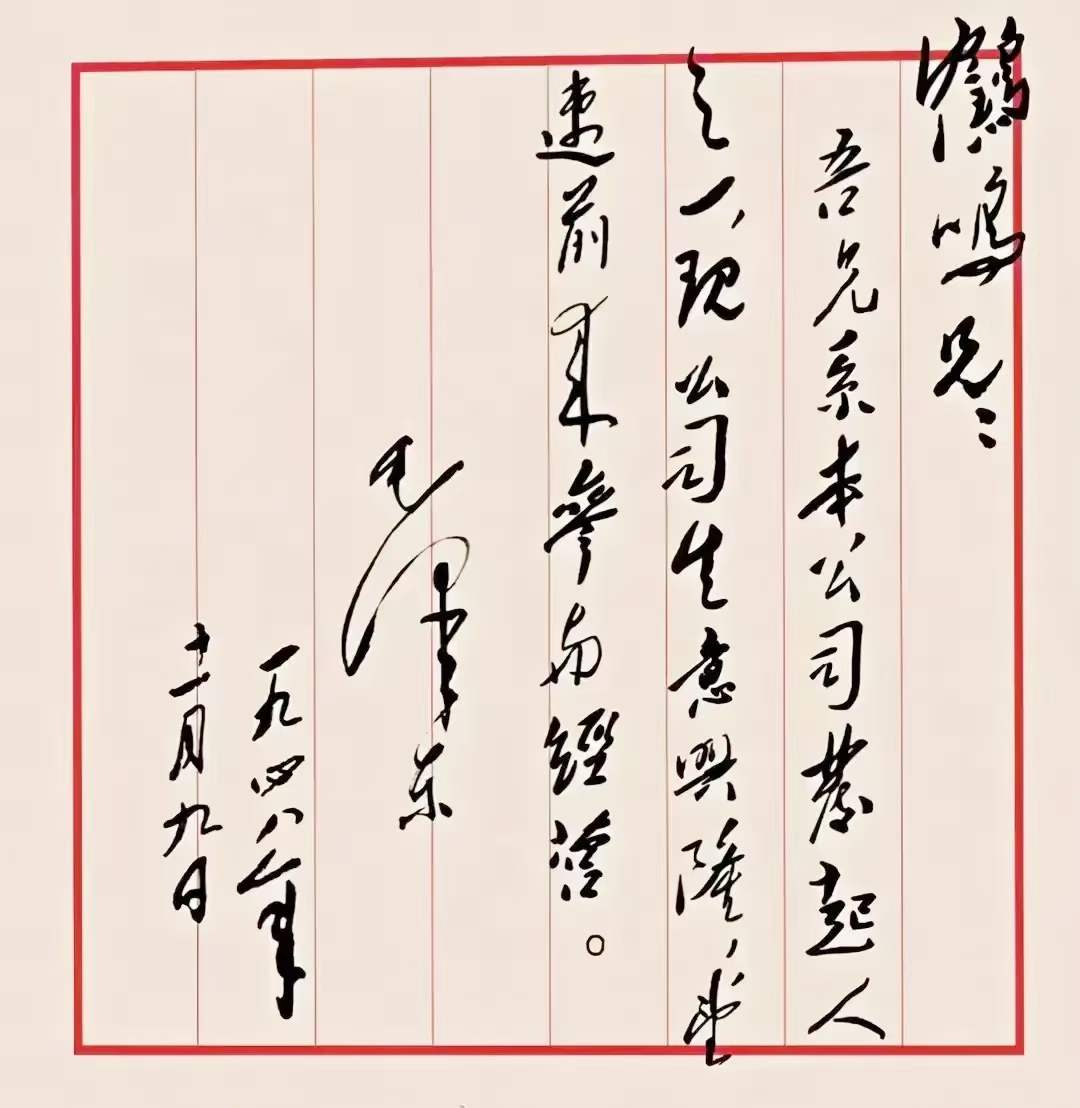 鹤鸣兄：
吾兄系本公司发起人
之一，现公司生意興隆，望
速前来參与經营。
毛泽东
一九四八年
十一月九日